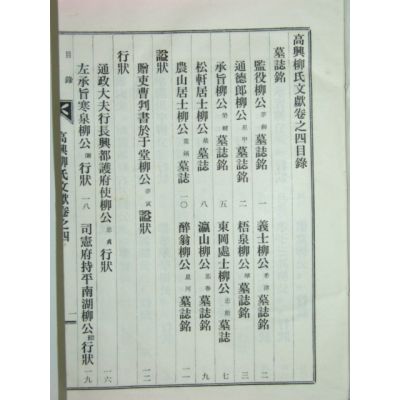 高興柳氏文獻卷之四目錄
墓誌銘
監役柳公 墓誌銘 一 義士柳公 墓誌銘 二
通德郎柳公 墓誌銘 二 梧泉柳公 墓誌銘 三
承旨柳公 墓誌銘 五 東岡處士柳公 墓誌 七
松軒居士柳公 墓誌 八 瀛山柳公 墓誌銘 九
農山居士柳公 墓誌 一〇 醉翁柳公 墓誌銘 一一
諡狀
贈吏曹判書於于堂柳公 諡狀 一二
行狀
通政大夫行長興都護府使柳公 行狀 一六
左承旨寒泉柳公 行狀 一八 司憲府持平南湖柳公 行狀 一九
目錄
高興柳氏文獻卷之四
一